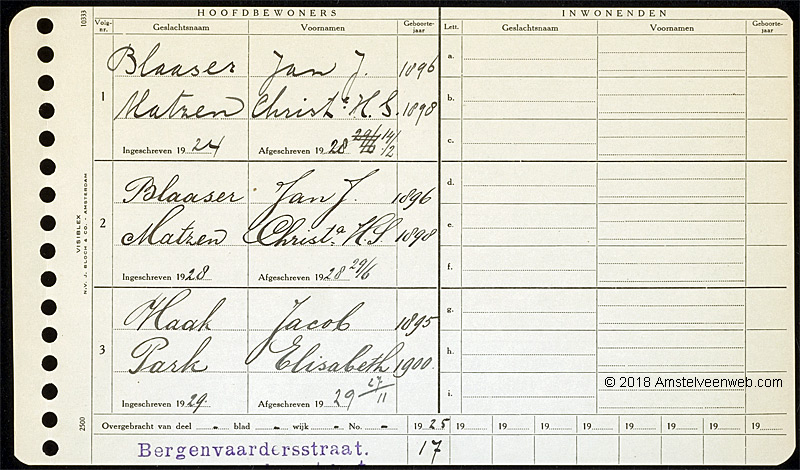 HOOFDBEWONERS INWONENDEN
Volg-nr. Geslachtsnaam Voornamen Geboorte-jaar Lett. Geslachtsnaam Voornamen Geboorte-jaar
10333
1
Blaaser Jan J. 1896
Matzen Christ.a H.S. 1898
Ingeschreven 1924 Afgeschreven 1928 29/6 14/12
a.
b.
c.
2
Blaaser Jan J. 1896
Matzen Christ.a H.S. 1898
Ingeschreven 1928 Afgeschreven 1928 29/6
d.
e.
f.
3
Haak Jacob 1895
Park Elisabeth 1900
Ingeschreven 1929 Afgeschreven 1929 27/11
g.
h.
i.
VISIBLEX
N.V. J. BLOCH & CO. - AMSTERDAM
2500
© 2018 Amstelveenweb.com
Overgebracht van deel - blad - wijk - No. - 1925 19 19 19 19 19 19 19 19
Bergenvaardersstraat. 17